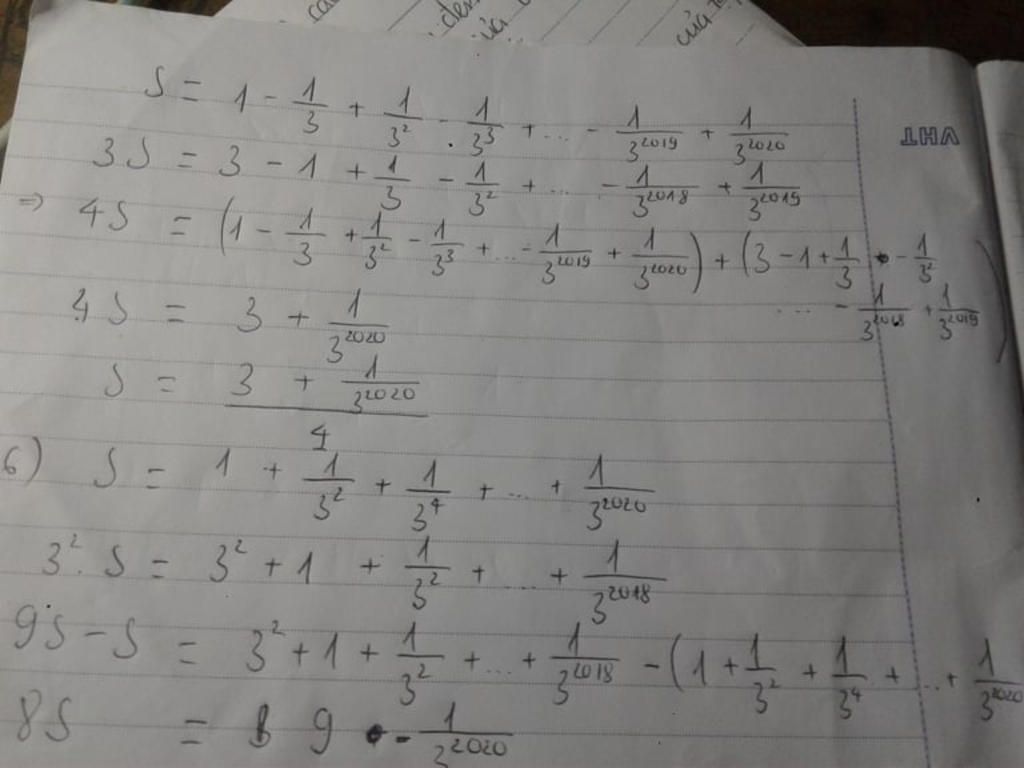 S = 1 - 1/3 + 1/3² - 1/3³ + ... - 1/3²⁰¹⁹ + 1/3²⁰²⁰
VHT
3S = 3 - 1 + 1/3 - 1/3² + ... - 1/3²⁰¹⁸ + 1/3²⁰¹⁹
=> 4S = (1 - 1/3 + 1/3² - 1/3³ + ... - 1/3²⁰¹⁹ + 1/3²⁰²⁰) + (3 - 1 + 1/3 - 1/3²
.... - 1/3²⁰¹⁸ + 1/3²⁰¹⁹)
4S = 3 + 1/3²⁰²⁰
S = (3 + 1/3²⁰²⁰)/4
6) S = 1 + 1/3² + 1/3⁴ + ... + 1/3²⁰²⁰
3².S = 3² + 1 + 1/3² + ... + 1/3²⁰¹⁸
9S - S = 3² + 1 + 1/3² + ... + 1/3²⁰¹⁸ - (1 + 1/3² + 1/3⁴ + ... + 1/3²⁰²⁰
8S = 9 - 1/3²⁰²⁰